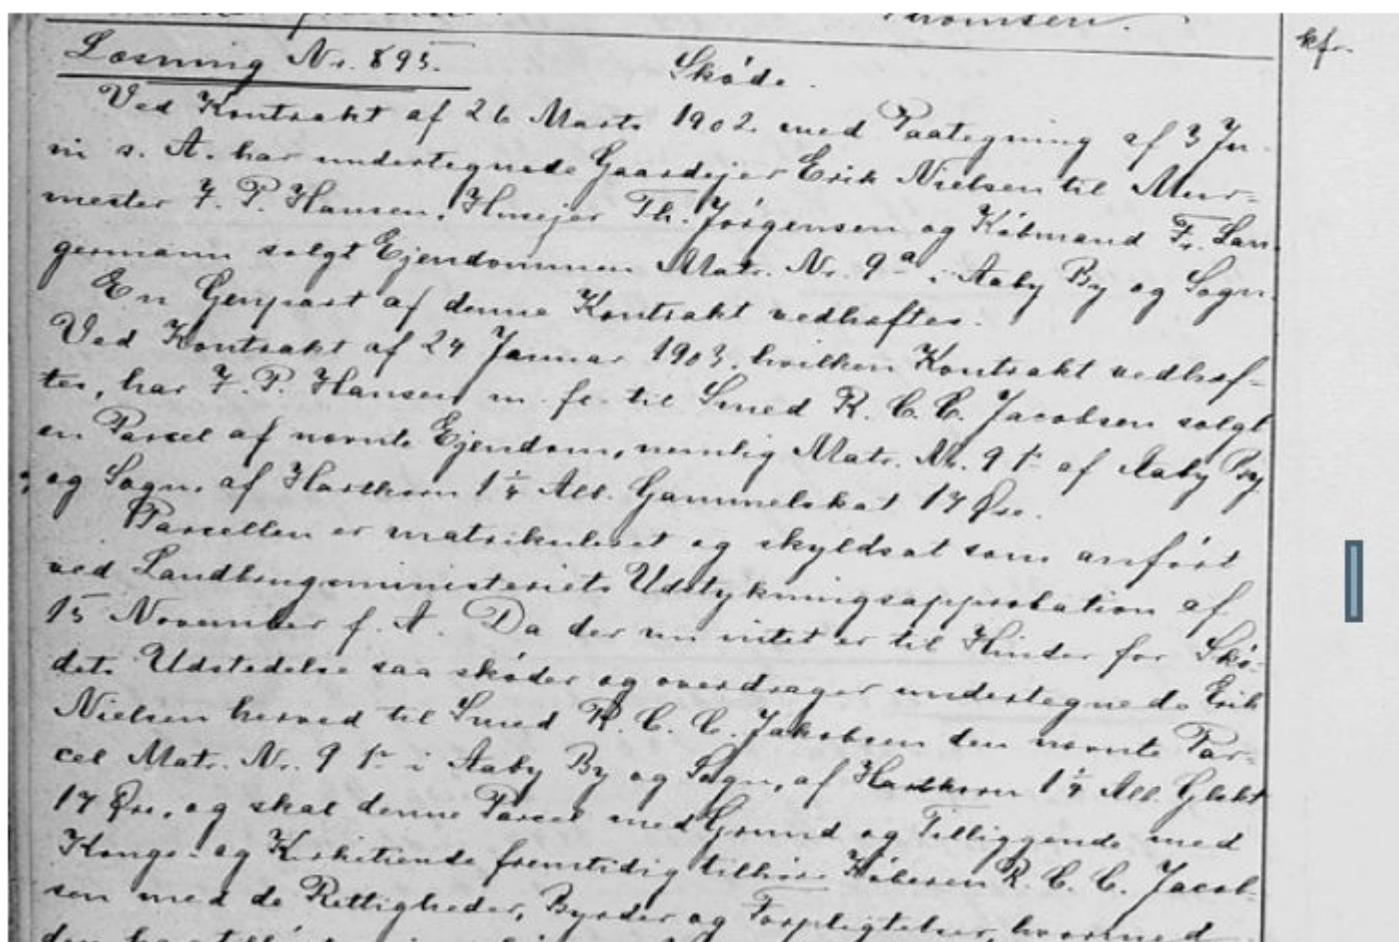 Thomsen.
kfr.
Læsning Nr. 895.
Skøde.
Ved Kontrakt af 26 Marts 1902 med Paategning af 3 Ju-
ni s. A. har undertegnede Gaardejer Erik Nielsen til Mur-
mester J. P. Hansen, Husejer Th. Jørgensen og Købmand Fr. Lan-
germann solgt Ejendommen Matr. Nr. 9a i Aaby By og Sogn.
En Genpart af denne Kontrakt vedhæftes.
Ved Kontrakt af 24 Januar 1903, hvilken Kontrakt vedhæf-
tes, har J. P. Hansen m. fl. til Smed R. C. C. Jacobsen solgt
en Parcel af nævnte Ejendom, nemlig Matr. Nr. 9 af Aaby By
og Sogn, af Hartkorn 1¼ Alb. Gammelskat 17 Øre.
Parcellen er matrikuleret og skyldsat som anført
ved Landbrugsministeriets Udstykningsapprobation af
15 November f. A. Da der nu intet er til Hinder for Skø-
dets Udstedelse saa skøder og overdrager undertegnede Erik
Nielsen herved til Smed R. C. C. Jakobsen den nævnte Par-
cel Matr. Nr. 9 i Aaby By og Sogn, af Hartkorn 1¼ Alb. Glskt
17 Øre, og skal denne Parcel med Grund og Tilliggende med
Konge- og Kirketiende fremtidig tilhøre Køberen R. C. C. Jacob-
sen med de Rettigheder, Byrder og Forpligtelser, hvormed